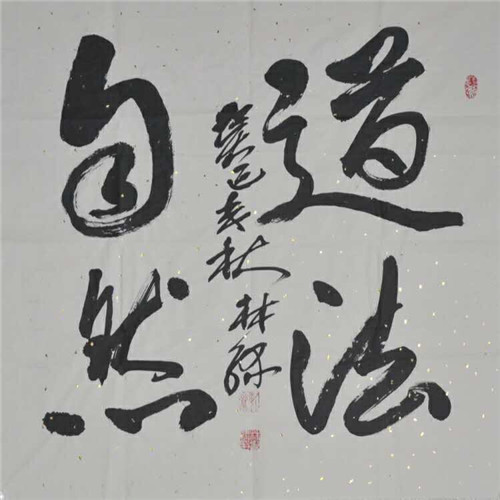 道法
自然
癸巳年秋林